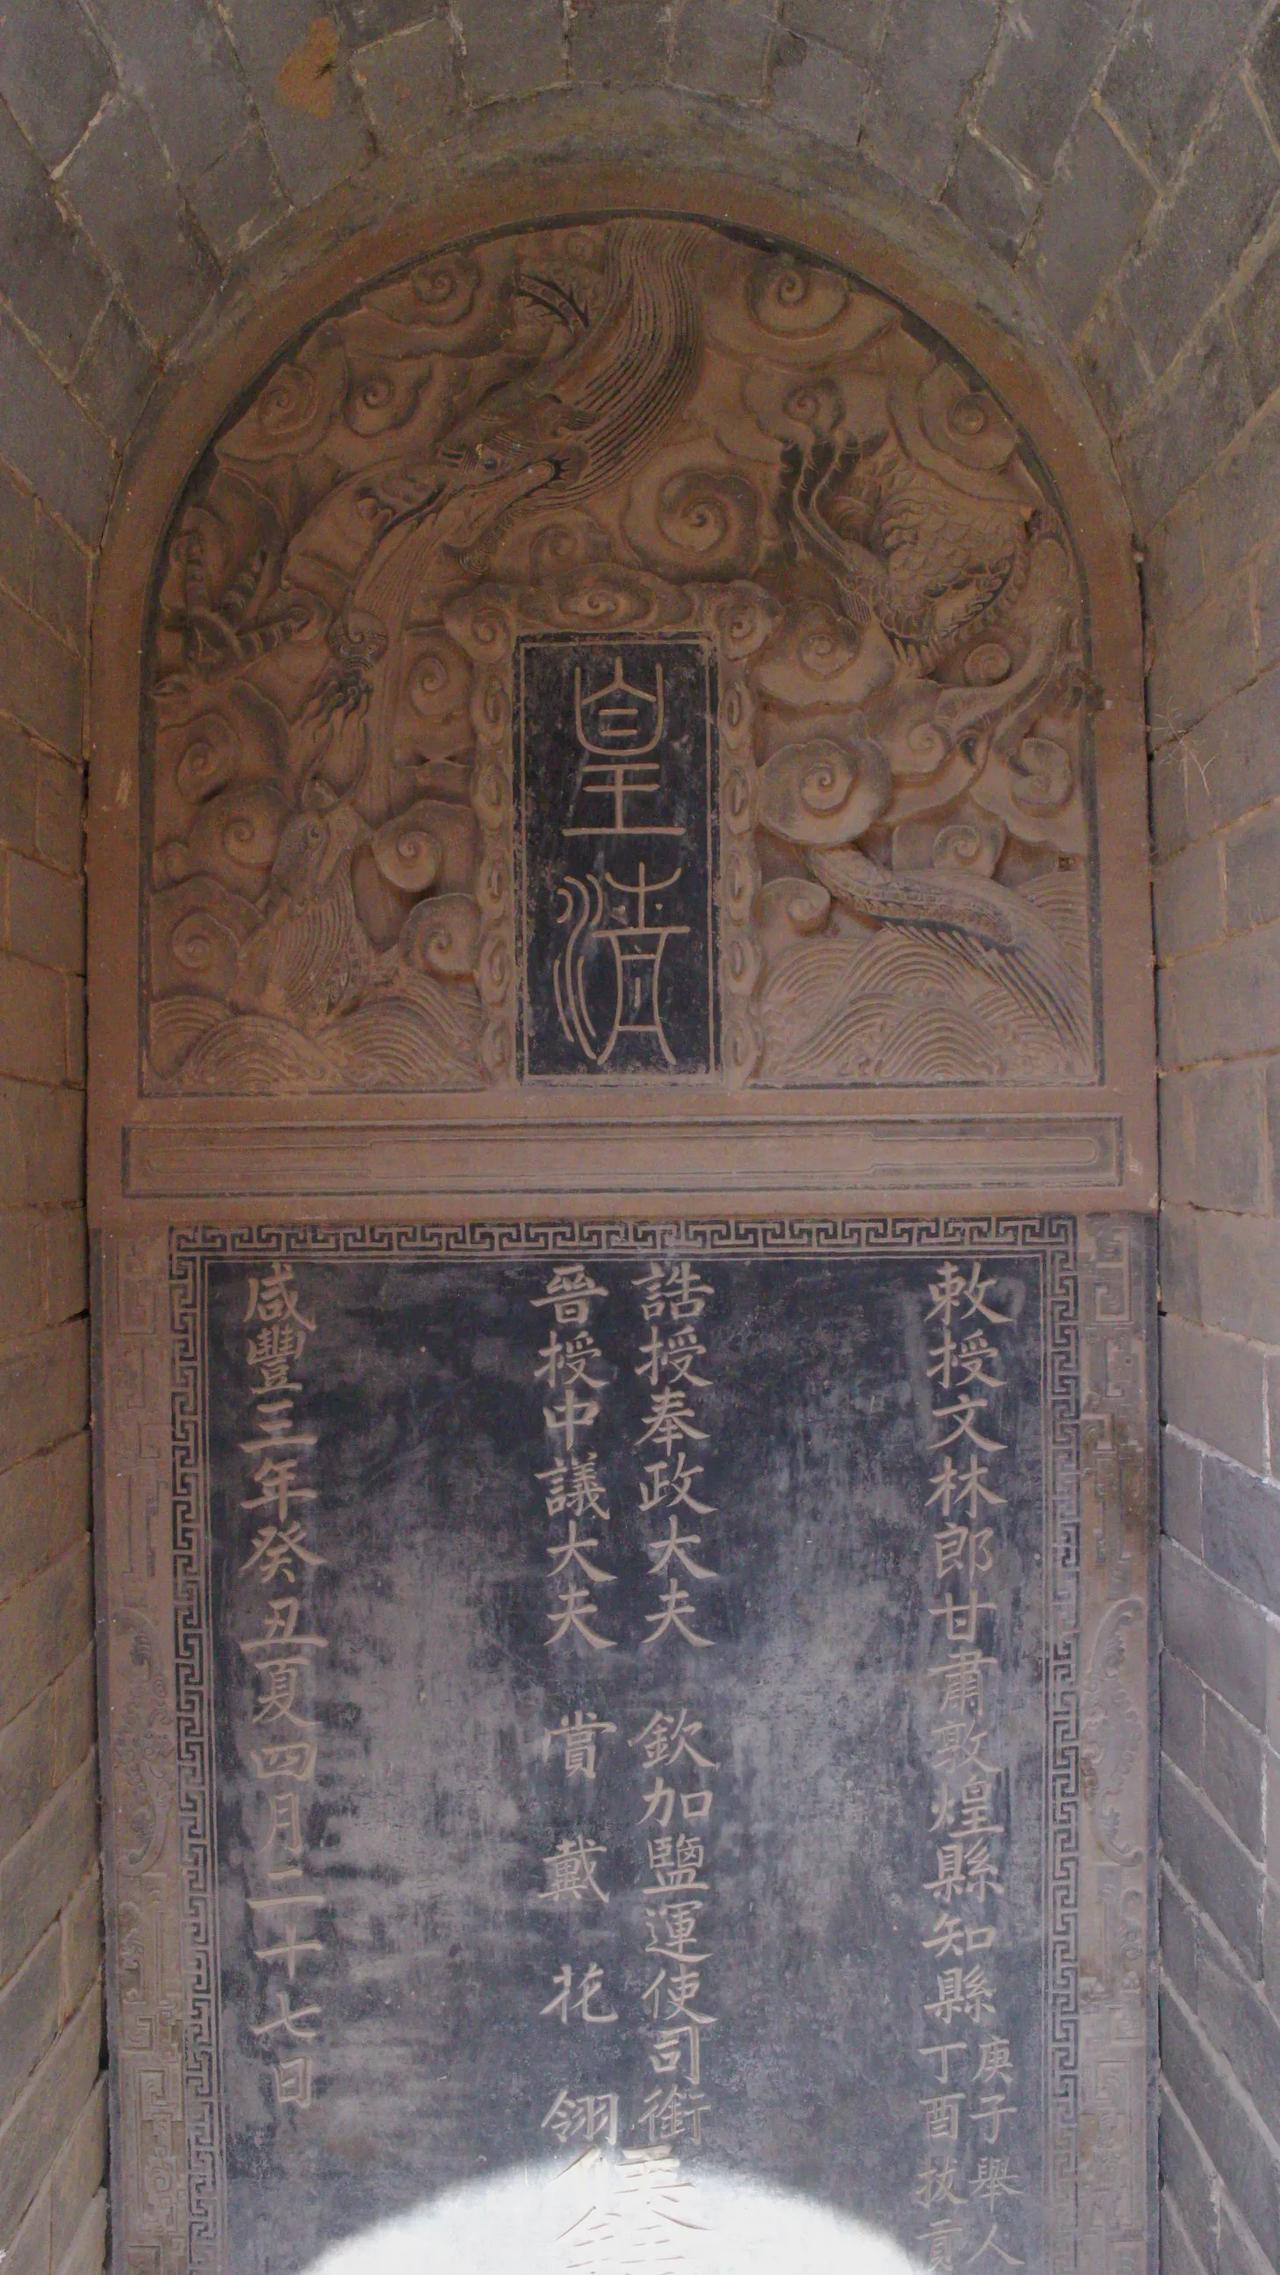 皇清
敕授文林郎甘肅敦煌縣知縣
庚子舉人
丁酉拔貢
誥授奉政大夫 欽加鹽運使司銜
晉授中議大夫 賞戴花翎
咸豐三年癸丑夏四月二十七日